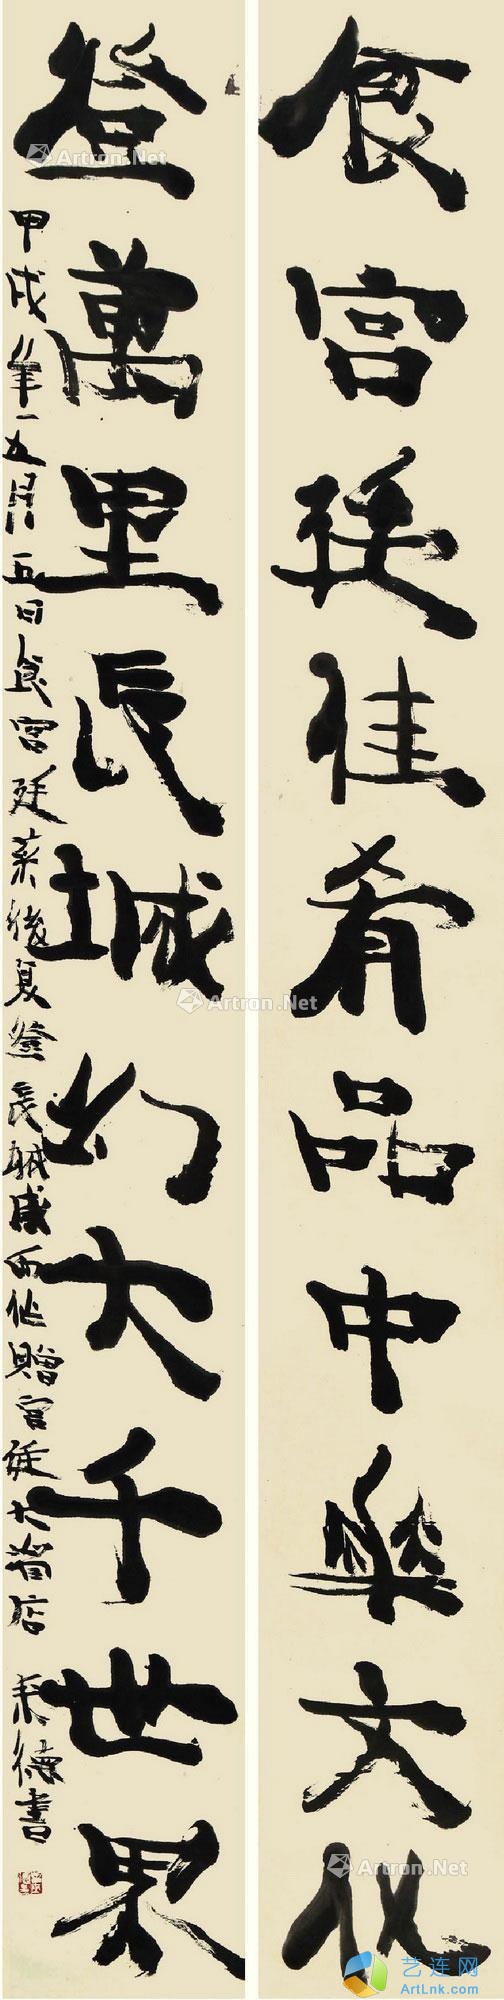 食宮廷佳肴品中華文化
登萬里長城幻大千世界
甲戌年九月五日食宮廷菜後夏登長城感而作贈宮廷大店
德書
Artron.Net
Artron.Net
Artron.Net
Artron.Net
Artron.Net
Artron.Net
艺连网
ArtLnk.com